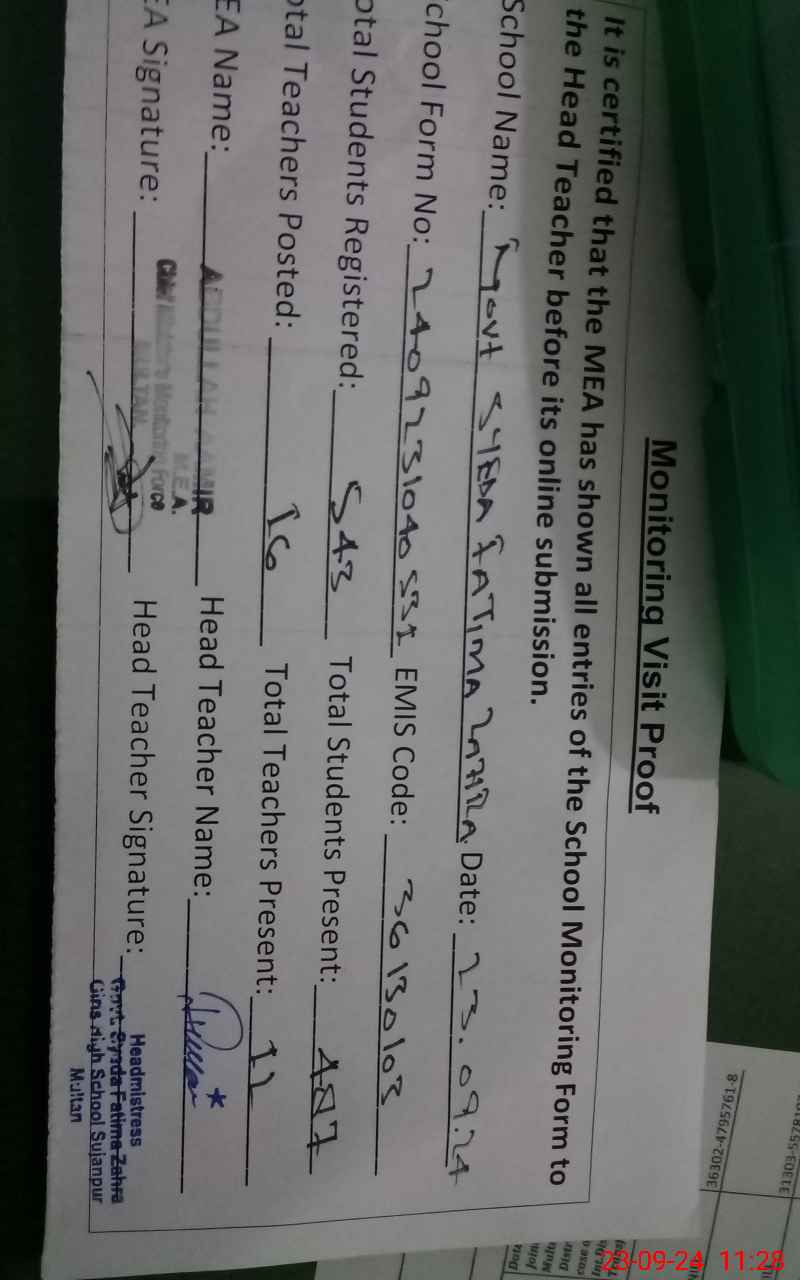 Monitoring Visit Proof
It is certified that the MEA has shown all entries of the School Monitoring Form to
the Head Teacher before its online submission.
School Name: Govt SYEDA FATIMA ZAHRA Date: 23.09.24
chool Form No: 2409231040531 EMIS Code: 36130103
otal Students Registered: 543 Total Students Present: 487
otal Teachers Posted: 16 Total Teachers Present: 12
EA Name: ABDULLAH AAMIR Head Teacher Name:
M.E.A.
Chief Ministers Monitoring Force
MULTAN
EA Signature: Head Teacher Signature:
Headmistress
Govt. Syeda Fatima Zahra
Girls High School Sujanpur
Multan
36302-4795761-8
23-09-24 11:28